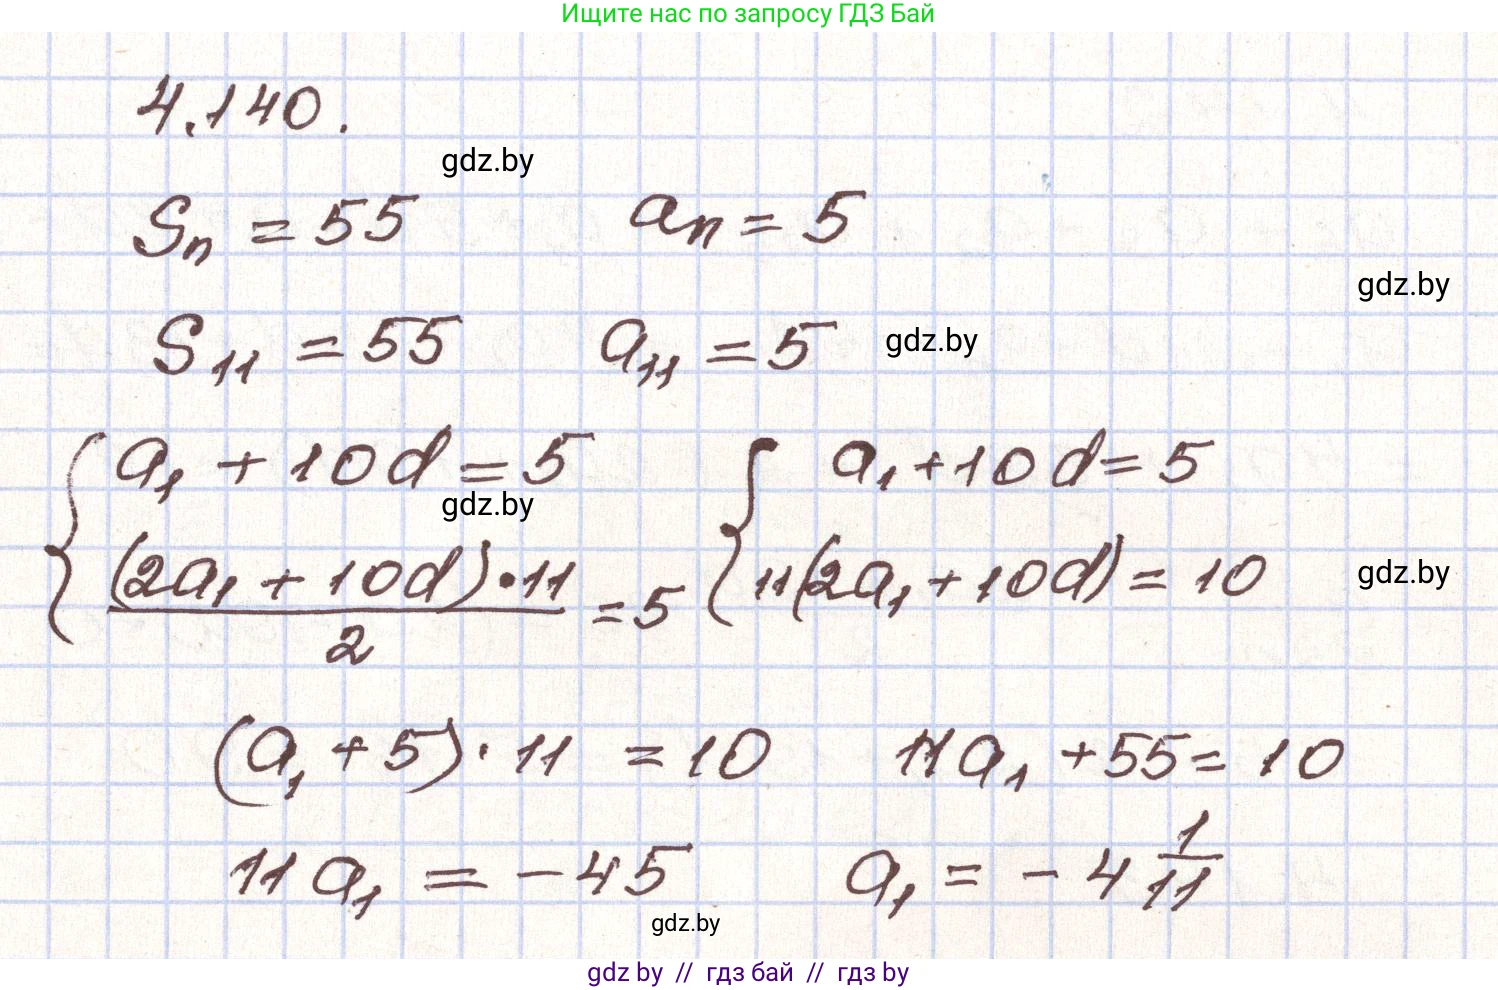 Ищите нас по запросу ГДЗ Бай
4.140.
gdz.by
Sₙ = 55 aₙ = 5
gdz.by
S₁₁ = 55 a₁₁ = 5 gdz.by
{ a₁ + 10d = 5 { a₁ + 10d = 5
gdz.by
(2a₁ + 10d) · 11 / 2 = 5 11(2a₁ + 10d) = 10 gdz.by
(a₁ + 5) · 11 = 10 11a₁ + 55 = 10
11a₁ = -45 a₁ = -4 1/11
gdz.by
gdz by // гдз бай // гдз by